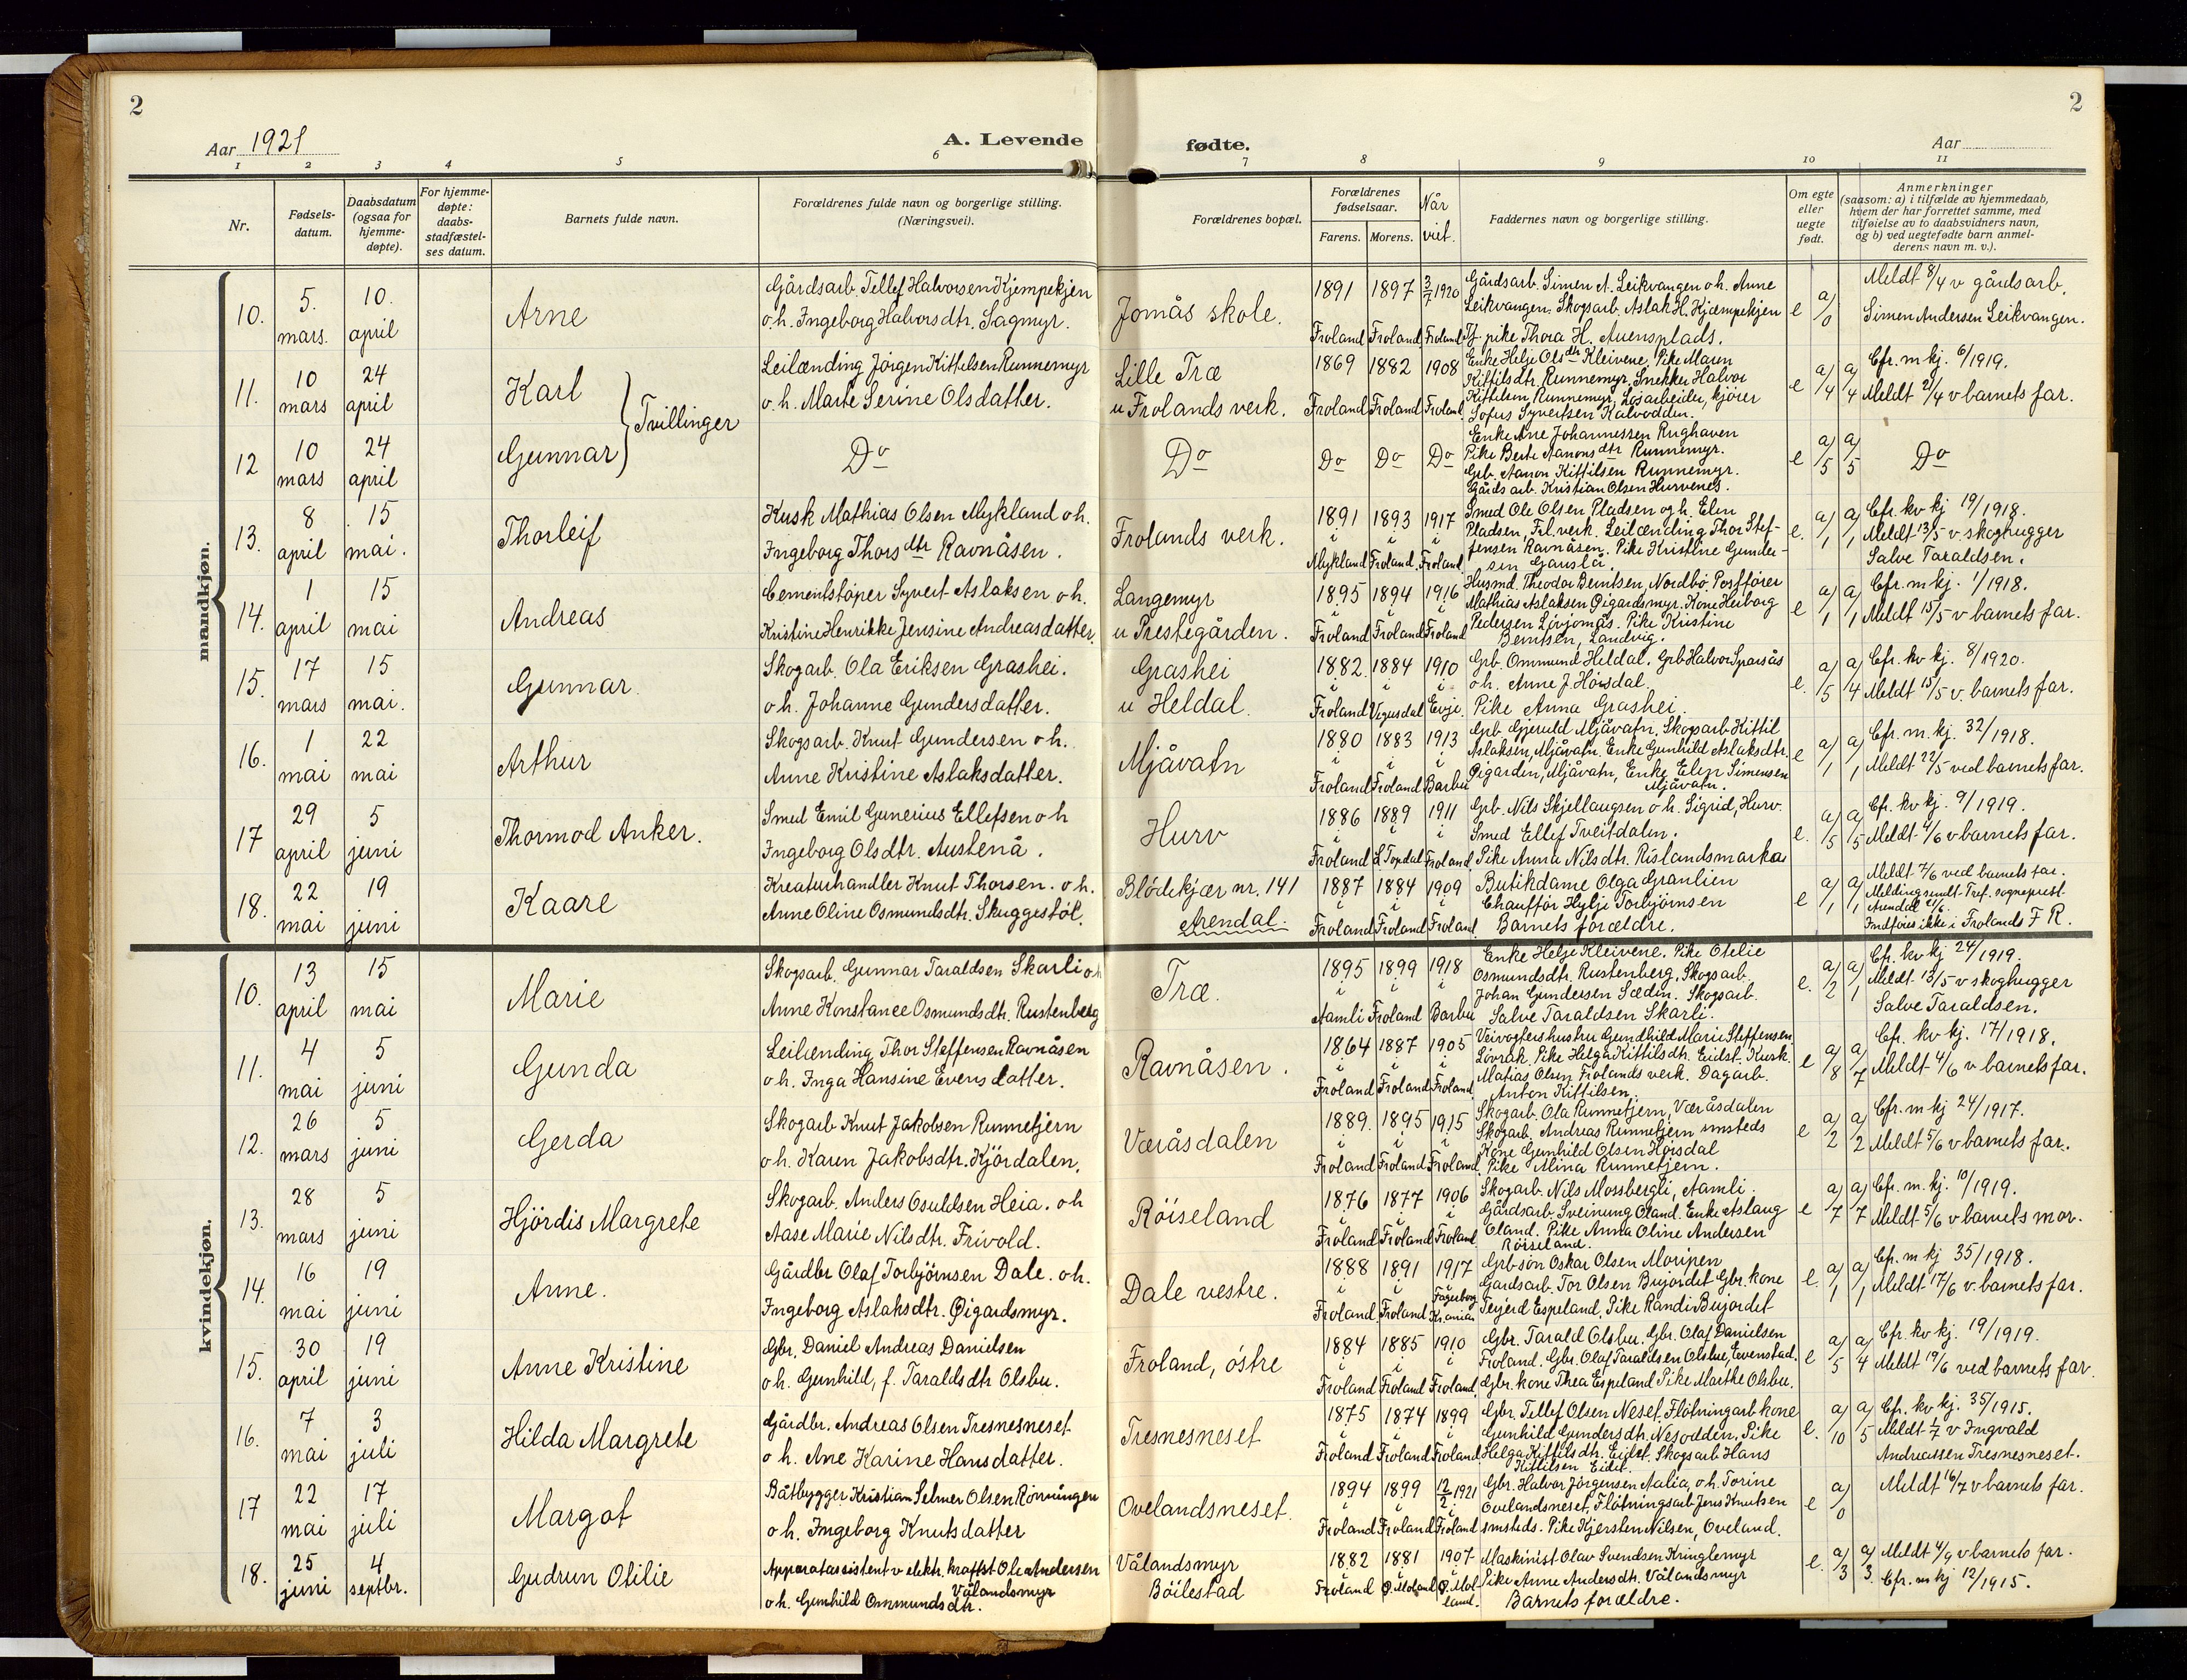 2
Aar 1921
A. Levende
fødte.
Aar
2
1 2 3 4 5 6 7 8 9 10 11
Nr.
Fødsels-
datum.
Daabsdatum
(ogsaa for
hjemme-
døpte).
For hjemme-
døpte:
daabs-
stadfæstel-
ses datum.
Barnets fulde navn.
Forældrenes fulde navn og borgerlige stilling.
(Næringsvei).
Forældrenes bopæl.
Forældrenes
fødselsaar.
Farens. Morens.
Når
viet.
Faddernes navn og borgerlige stilling.
Om egte
eller
uegte
født.
Anmerkninger
(saasom: a) i tilfælde av hjemmedaab,
hvem der har forrettet samme, med
tilføielse av to daabsvidners navn,
og b) ved uegtefødte barn anmel-
derens navn m. v.).
mandkjøn.
10.
5. mars.
10. april
Arne
Gårdsarb. Tellef Halvorsen Kjempekjen
o. h. Ingeborg Halvorsdtr. Sagmyr.
Jomås skole.
1891 1897 3/7 1920
Froland Froland Froland
Gårdsarb. Simen A. Leikvangen o h. Anne
Leikvangen. Skogsarb. Aslak H. Kjæmpekjen
Tj. pike Thora H. Auensplads.
e
a/0
Meldt 8/4 v gårdsarb.
Simen Andersen Leikvangen.
11.
10 mars
24 april
Karl
Tvillinger
Leilænding Jörgen Kittelsen Runnemyr
o. h. Marte Serine Olsdatter.
Lille Træ
u Frolands verk.
1869 1882 1908
Froland Froland Frolnd.
Enke Helje Olsdtr Kleivene, Pike Maren
Kittilsdtr. Runnemyr, Snekker Halvor
Kittilsen, Runnemyr, Løsarbeider, kjører
Sofus Syvertsen Kalvodden.
e
a/4 a/4
Cfr. m kj. 6/1919.
Meldt 21/4 v barnets far.
12
10 mars
24 april
Gunnar
Do
Do
Do Do Do
Enke Ane Johannessen Rughaven
Pike Berte Aanonsdtr Runnemyr.
Grb. Aanon Kittilsen Runnemyr.
Gårdsarb. Kristian Olsen Hurvenes.
e
a/5 a/5
Do
13.
8 april
15 mai.
Thorleif
Kusk Mathias Olsen Mykland o h.
Ingeborg Thorsdtr Ravnåsen.
Frolands verk.
1891 1893 1917
i i i
Mykland Froland. Froland
Smed Ole Olsen Pladsen og h. Elen
Pladsen, Frl. verk. Leilænding Thor Stef-
fensen Ravnåsen. Pike Kristine Gunder-
sen Gaustå.
e.
a/1 a/1
Cfr. kv kj 19/1918.
Meldt 13/5 v. skoghugger
Salve Taraldsen.
14.
1 april
15 mai
Andreas
Cementstøper Syvert Aslaksen o h.
Kristine Henrikke Jensine Andreasdatter.
Langemyr
u Prestegården.
1895 1894 1916
i i i
Froland Froland Froland
Husmd. Theodor Berntsen, Nordbø. Postfører
Mathias Aslaksen Øigardsmyr. Kone Herborg
Pedersen Løvjomås. Pike Kristine
Berntsen, Landvig.
e
a/1 a/1
Cfr. m kj. 1/1918.
Meldt 15/5 v barnets far.
15.
17 mars
15 mai.
Gunnar
Skogarb. Ola Eriksen Grashei.
o h. Johanne Gundersdatter.
Grashei
u Heldal.
1882. 1884 1910
i i i
Froland Vegusdal Evje.
Grb. Ommund Heldal. Grb Halvor Sparsås
o h. Anne J. Hörsdal.
Pike Anna Grashei.
e.
a/5 a/4
Cfr. kv kj. 8/1920.
Meldt 15/5 v. barnets far.
16.
1 mai
22 mai
Arthur
Skogsarb. Knut Gundersen o h.
Anne Kristine Aslaksdatter.
Mjåvatn
1880 1883 1913
i i i
Froland Froland Barbu
Grb Gjeruld Mjåvatn, Skogsarb Kittil
Aslaksen, Mjåvatn. Enke Gunhild Aslaksdtr.
Øigarden, Mjåvatn, Enke Elen Simensen
Mjåvatn.
e
a/1 a/1
Cfr. m. kj. 32/1918.
Meldt 22/5 ved barnets far.
17
29 april
5 juni
Thormod Anker.
Smed Emil Gunerius Ellefsen o h
Ingeborg Olsdtr. Austenå.
Hurv
1886 1889 1911
i i i
Froland L. Topdal Froland
Grb. Nils Skjellaugsen o h. Sigrid, Hurv.
Smed Ellef Tveitdalen.
Pike Anna Nilsdtr. Rislandsmarka
e.
a/5 a/5
Cfr. kv kj. 9/1919.
Meldt 4/6 v barnets far.
18.
22 mai
19 juni
Kaare
Kreaturhandler Knut Thorsen. o h.
Anne Oline Osmundsdtr. Skuggestöl.
Blödekjær nr. 141
Arendal.
1887 1884 1909
i i i
Froland Froland Froland
Butikdame Olga Granlien
Chauffór Hylje Torbjørnsen
Barnets forældre.
e
a/1 a/1
Meldt 7/6 ved barnets far.
Melding sendt Tref. sogneprest
Arendal 21/6.
Indføres ikke i Frolands F R.
kvindekjøn.
10.
13 april
15 mai
Marie
Skogsarb. Gunnar Taraldsen Skarli o h
Anne Konstance Osmundsdtr. Rustenberg
Træ.
1895 1899 1918
i i i
Aamli Froland Barbu
Enke Helje Kleivene. Pike Otilie
Osmundsdtr. Rustenberg, Skogsarb.
Johan Gundersen Sædin. Skogsarb.
Salve Taraldsen Skarli.
e.
a/2 a/1
Cfr. kv kj 24/1919.
Meldt 13/5 v skoghugger
Salve Taraldsen.
11.
4 mai
5 juni
Gunda
Leilænding Thor Steffensen Ravnåsen
o h. Inga Hansine Evensdatter.
Ravnåsen.
1864 1887 1905
i i i
Froland Froland Froland
Veivogters hustru Gundhild Marie Steffensen
Lövrak. Pike Helga Kittilsdtr. Eidet. Kusk.
Matias Olsen Frolands verk. Dagarb.
Anton Kittilsen.
e
a/8 a/7
Cfr. kv kj. 17/1918.
Meldt 4/6 v barnets far.
12.
26 mars
5 juni
Gerda
Skogarb Knut Jakobsen Runnetjern
o h. Karen Jakobsdtr. Kjördalen.
Væråsdalen
1889. 1895 1915
i i i
Froland Froland Froland
Skogarb. Ola Runnetjern, Væråsdalen
Skogarb. Andreas Runnetjern smsteds
Kone Gunhild Olsen Hörsdal
Pike Alina Runnetjern.
e
a/2 a/2
Cfr. m kj 24/1917.
Meldt 5/6 v barnets far.
13.
28 mars
5 juni
Hjördis Margrete
Skogarb. Anders Osuldsen Heia. o h
Aase Marie Nilsdtr. Frivold.
Röiseland
1876 1877 1906
i i i
Froland Froland Froland
Skogarb. Nils Mossbergli, Aamli.
Gårdsarb. Sveinung Oland. Enke Aslaug
Oland. Pike Anna Oline Andersen
Röiseland.
e
a/7 a/7
Cfr. m. kj. 10/1919.
Meldt 5/6 v barnets mor.
14.
16 mai
19 juni
Anne.
Gårdbr Olaf Torbjörnsen Dale. o h.
Ingeborg Aslaksdtr. Øigardsmyr.
Dale vestre.
1888 1891 1917
i i Fagerborg
Froland Froland Kr.ania
Grbsøn Oskar Olsen Moripen
Gardsarb. Tor Olsen Bujordet Gbr. kone
Espeland. Pike Randi Bujordet
e.
a/1 a/1
Cfr. m kj 35/1918.
Meldt 17/6 v. barnets far.
15.
30 april
19 juni
Anne Kristine
Gbr. Daniel Andreas Danielsen
o h. Gunhild, f. Taraldsdtr Olsbu.
Froland, östre
1884 1885 1910
i i i
Froland Froland Froland
Gbr. Tarald Olsbu. Gbr. Olaf Danielsen
Froland. Gbr. Olaf Taraldsen Olsbu, Evenstad.
Gbr. kone Thea Espeland Pike Marthe Olsbu.
e
a/5 a/4
Cfr. kv kj. 19/1919.
Meldt 19/6 ved barnets far.
16.
7 mai
3 juli
Hilda Margrete
Gårdbr. Andreas Olsen Tresnesneset
o h. Ane Karine Hansdatter.
Tresnesneset
1875 1874 1899
i i i
Froland Froland Froland
Gbr. Tellef Olsen Neset. Flötningarb kone
Gunhild Gundersdtr. Nesodden, Pike
Helga Kittilsdtr. Eidet. Skogsarb Hans
Kittilsen Eidet.
e.
a/10 a/5
Cfr. kv kj. 35/1915.
Meldt 1/7 v Ingvald
Andreassen Tresnesneset.
17
22 mai
17 juli
Margot
Båtbygger Kristian Selmer Olsen Rönningen
o h. Ingeborg Knutsdatter
Ovelandsneset.
1894 1899 12/2 1921
i i i
Froland Froland Froland
Gbr. Halvor Jörgensen Aalia, o h. Torine
Ovelandsneset, Flötningsarb Jens Knutsen
smsteds. Pike Kjersten Nilsen, Oveland.
e
a/0
Meldt 16/7 v barnets far.
18.
25 juni
4 septbr.
Gudrun Otilie
Apparatassistent v elektr. kraftst Ole Andersen
Vålandsmyr
o h. Gunhild Ommundsdtr.
Vålandsmyr
Böilestad
1882 1881 1907
i i i
Froland Ø. Moland Ø. Mol-
land.
Maskinist Olav Svendsen Kringlemyr
Pike Anne Andersdtr. Vålandsmyr
Barnets forældre.
e.
a/3 a/3.
Meldt 4/9 v barnets far.
Cfr. m kj 12/1915.